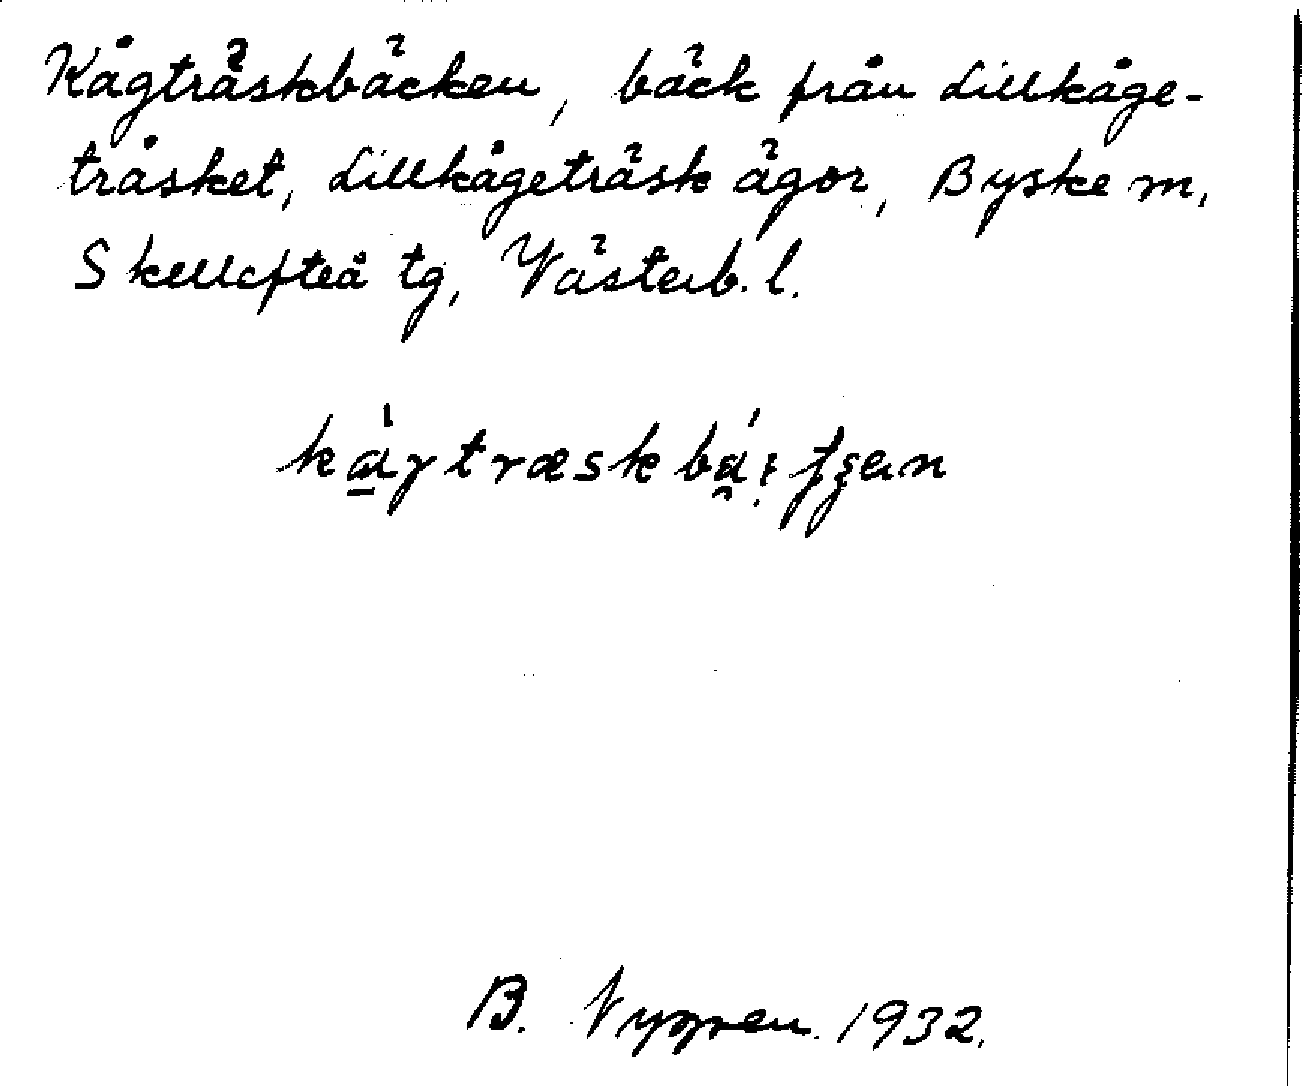 Kågträskbäcken, bäck från Lillkåge-
träsket, Lillkågeträsk ägor, Byske sn,
Skellefteå tg, Västerb. l.
B. Nygren 1932.